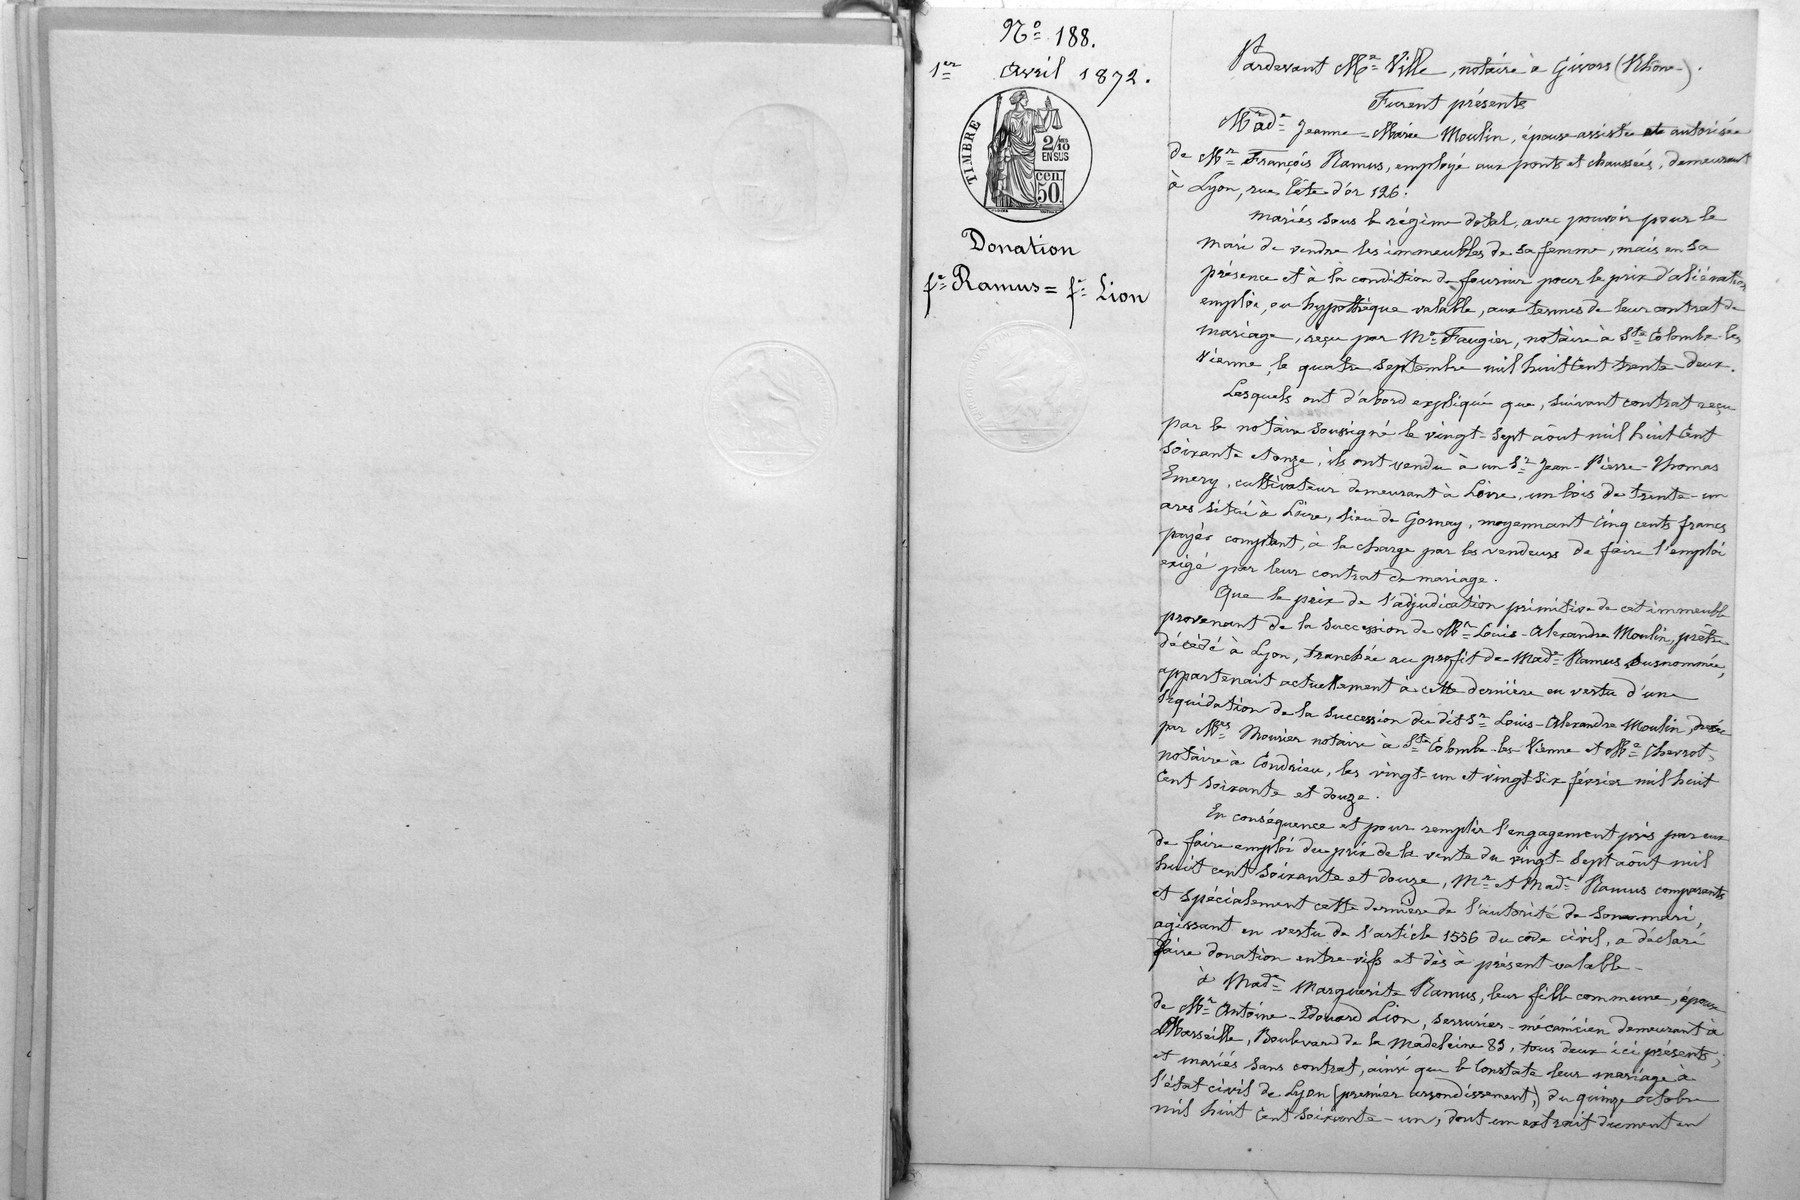 N° 188.
1er Avril 1872.
TIMBRE
2/10
EN SUS
cen.
50.
Donation
fe Ramus = fe Lion
Pardevant Me Ville, notaire à Givors (Rhône).
Furent présents
Made Jeanne-Marie Moulin, épouse assistée et autorisée
de Mr François Ramus, employé aux ponts et chaussées, demeurant
à Lyon, rue Tête d'or 126.
mariés sous le régime dotal, avec pouvoir pour le
mari de vendre les immeubles de sa femme, mais en sa
présence et à la condition de fournir pour le prix d'aliénation
emploi, ou hypothèque valable, aux termes de leur contrat de
mariage, reçu par Me Faugier, notaire à Ste Colombe-les
Vienne, le quatre septembre mil huit cent trente-deux.
Lesquels ont d'abord expliqué que, suivant contrat reçu
par le notaire soussigné le vingt-sept août mil huit cent
soixante et onze, ils ont vendu à un Sr Jean-Pierre-Thomas
Emery, cultivateur demeurant à Loire, un bois de trente-un
ares situé à Loire, lieu de Gornay, moyennant cinq cents francs
payés comptant, à la charge par les vendeurs de faire l'emploi
exigé par leur contrat de mariage.
Que le prix de l'adjudication primitive de cet immeuble
provenant de la succession de Mr Louis-Alexandre Moulin, prêtre
décédé à Lyon, tranchée au profit de Made Ramus susnommée,
appartenait actuellement à cette dernière en vertu d'une
liquidation de la succession du dit Sr Louis-Alexandre Moulin, dressée
par Mes Mourier notaire à Ste Colombe-les-Vienne et Me Chevrot,
notaire à Condrieu, les vingt-un et vingt-six février mil huit
cent soixante et douze.
En conséquence et pour remplir l'engagement pris par eux
de faire emploi du prix de la vente du vingt-sept août mil
huit cent soixante et douze, Mr et Made Ramus comparants
et spécialement cette dernière de l'autorité de son mari,
agissant en vertu de l'article 1556 du code civil, a déclaré
faire donation entre-vifs et dès à présent valable
à Made Marguerite Ramus, leur fille commune, épouse
de Mr Antoine-Edouard Lion, serrurier-mécanicien demeurant à
Marseille, Boulevard de la Madeleine 83, tous deux ici présents,
et mariés sans contrat, ainsi que le constate leur mariage à
l'état civil de Lyon (premier arrondissement,) du quinze octobre
mil huit cent soixante-un, dont un extrait dument en